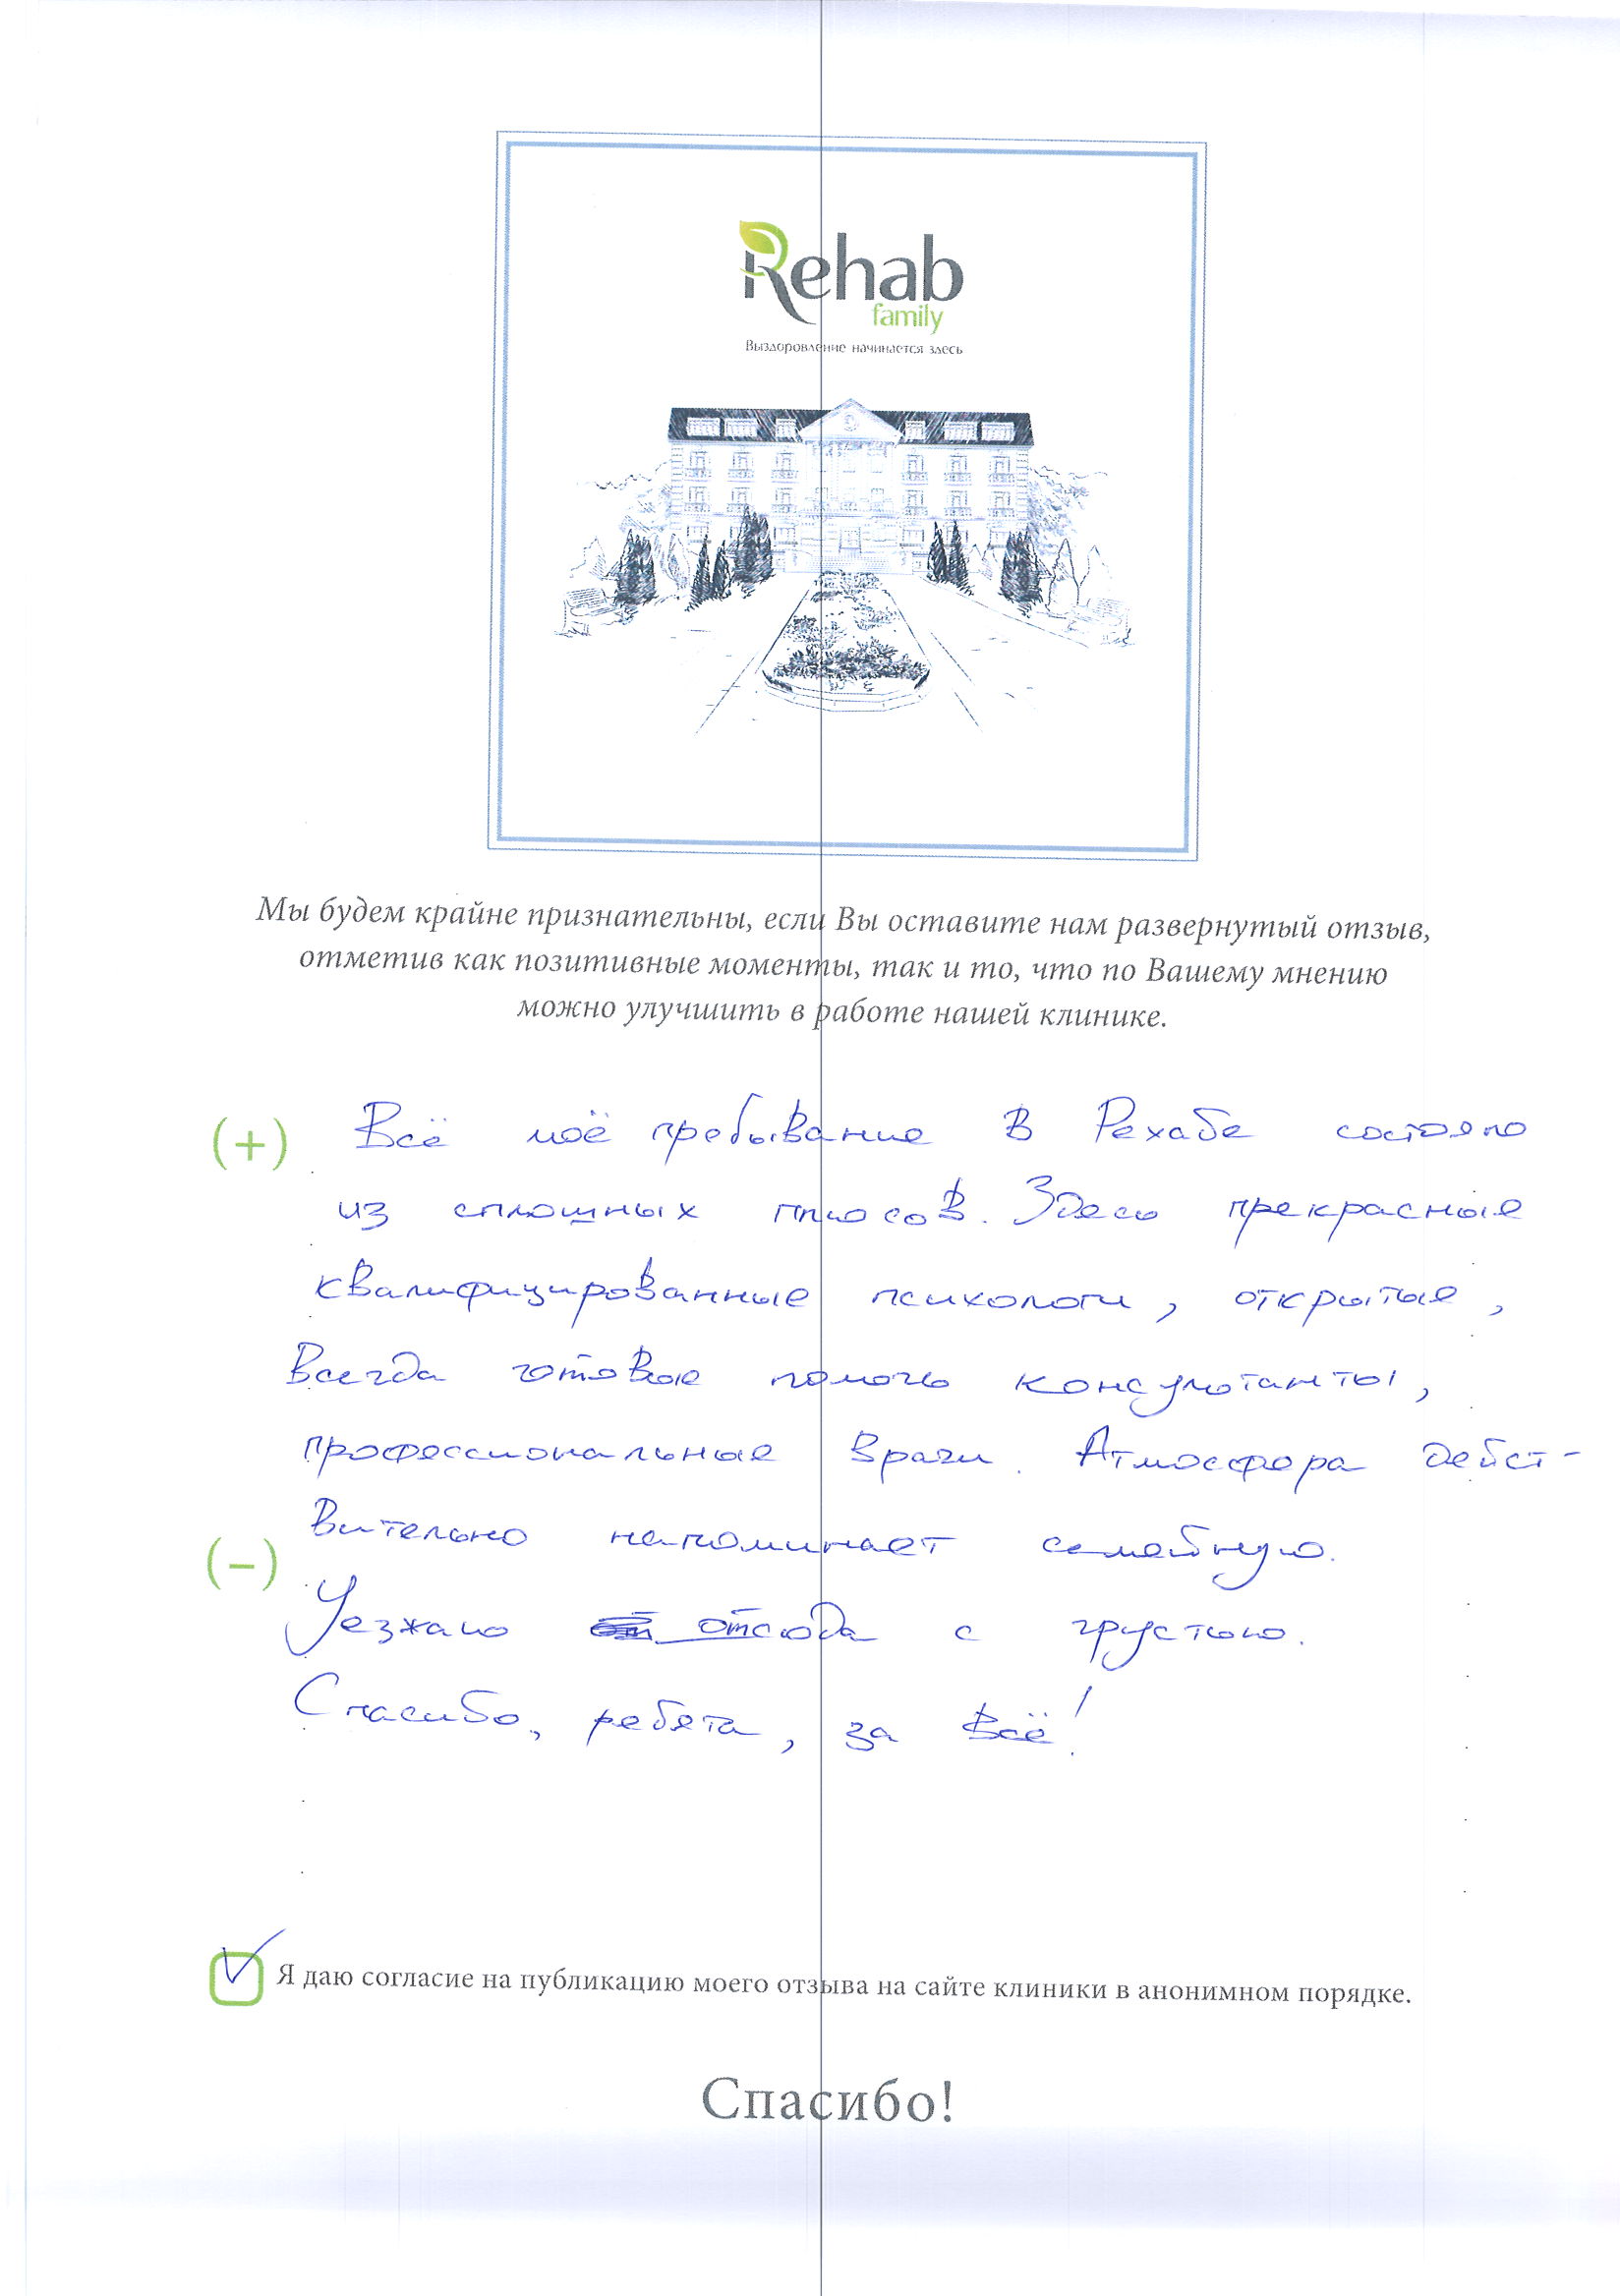 Rehab
family
Выздоровление начинается здесь
Мы будем крайне признательны, если Вы оставите нам развернутый отзыв,
отметив как позитивные моменты, так и то, что по Вашему мнению
можно улучшить в работе нашей клинике.
(+) Всё моё пребывание в Рехабе состояло
из сплошных плюсов. Здесь прекрасные
квалифицированные психологи, открытые,
всегда готовые помочь консультанты,
профессиональные врачи. Атмосфера дейст-
вительно напоминает семейную.
(−)
Уезжаю отсюда с грустью.
Спасибо, ребята, за всё!
Я даю согласие на публикацию моего отзыва на сайте клиники в анонимном порядке.
Спасибо!